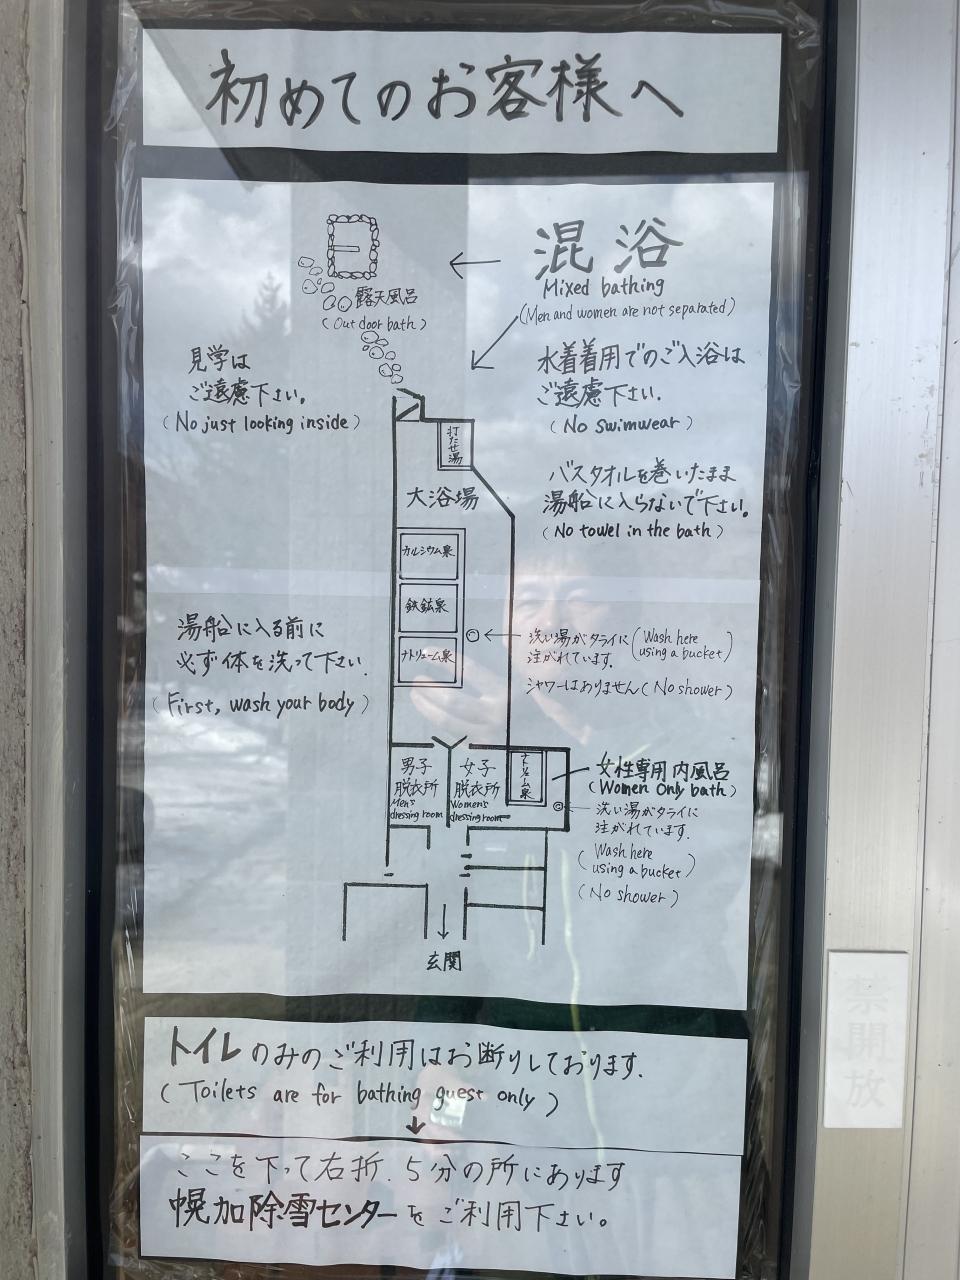 初めてのお客様へ
混浴
Mixed bathing
(Men and women are not separated)
露天風呂
(Out door bath)
見学は
ご遠慮下さい。
(No just looking inside)
水着着用でのご入浴は
ご遠慮下さい.
(No swimwear)
打たせ湯
大浴場
バスタオルを巻いたまま
湯船に入らないで下さい。
(No towel in the bath)
カルシウム泉
鉄鉱泉
ナトリューム泉
湯船に入る前に
必ず体を洗って下さい.
(First, wash your body)
洗い湯がタライに
注がれています.
(Wash here
using a bucket)
シャワーはありません (No shower)
男子
脱衣所
Men's
dressing room
女子
脱衣所
Women's
dressing room
ナトリューム泉
女性専用内風呂
(Women only bath)
洗い湯がタライに
注がれています.
(Wash here
using a bucket)
(No shower)
玄関
トイレのみのご利用はお断りしております.
(Toilets are for bathing guest only)
ここを下って右折.5分の所にあります
幌加除雪センターをご利用下さい。
禁開放